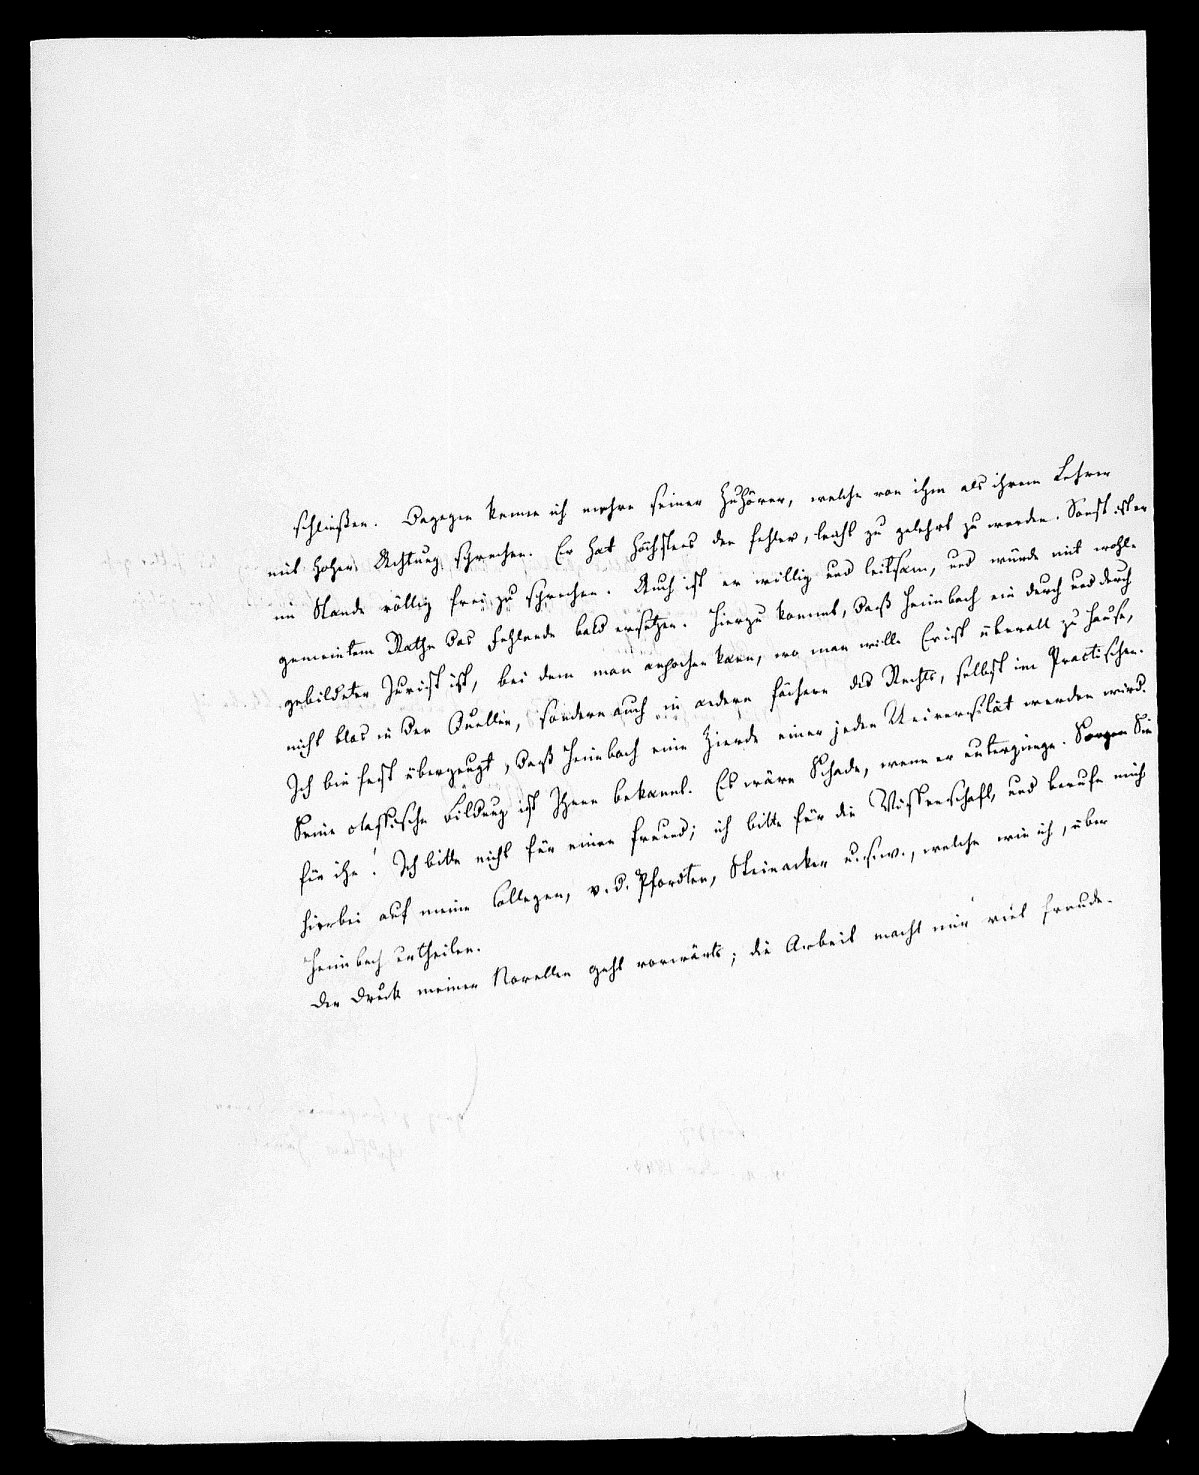 schließen. Dagegen kenne ich mehre seiner Zuhörer, welche von ihm als ihrem Lehrer
mit hoher Achtung sprechen. Er hat höchstens den Fehler, leicht zu gelehrt zu werden. Sonst ist er
im Stande völlig frei zu sprechen. Auch ist er willig und leitsam, und würde mit wohl-
gemeintem Rathe das Fehlende bald ersetzen. Hierzu kommt, daß Heimbach ein durch und durch
gebildeter Jurist ist, bei dem man anpochen kann, wo man will. Er ist überall zu Hause,
nicht blos in den Quellen, sondern auch in andern Fächern des Rechts, selbst im Practischen.
Ich bin fest überzeugt, daß Heimbach eine Zierde einer jeden Universität werden wird.
Seine classische Bildung ist Ihnen bekannt. Es wäre Schade, wenn er unterginge. Sorgen Sie
für ihn! Ich bitte nicht für einen Freund; ich bitte für die Wissenschaft, und berufe mich
hierbei auf meine Collegen, v. d. Pfordten, Steinacker u.s.w., welche wie ich, über
Heimbach urtheilen.
Der Druck meiner Novellen geht vorwärts; die Arbeit macht mir viel Freude.